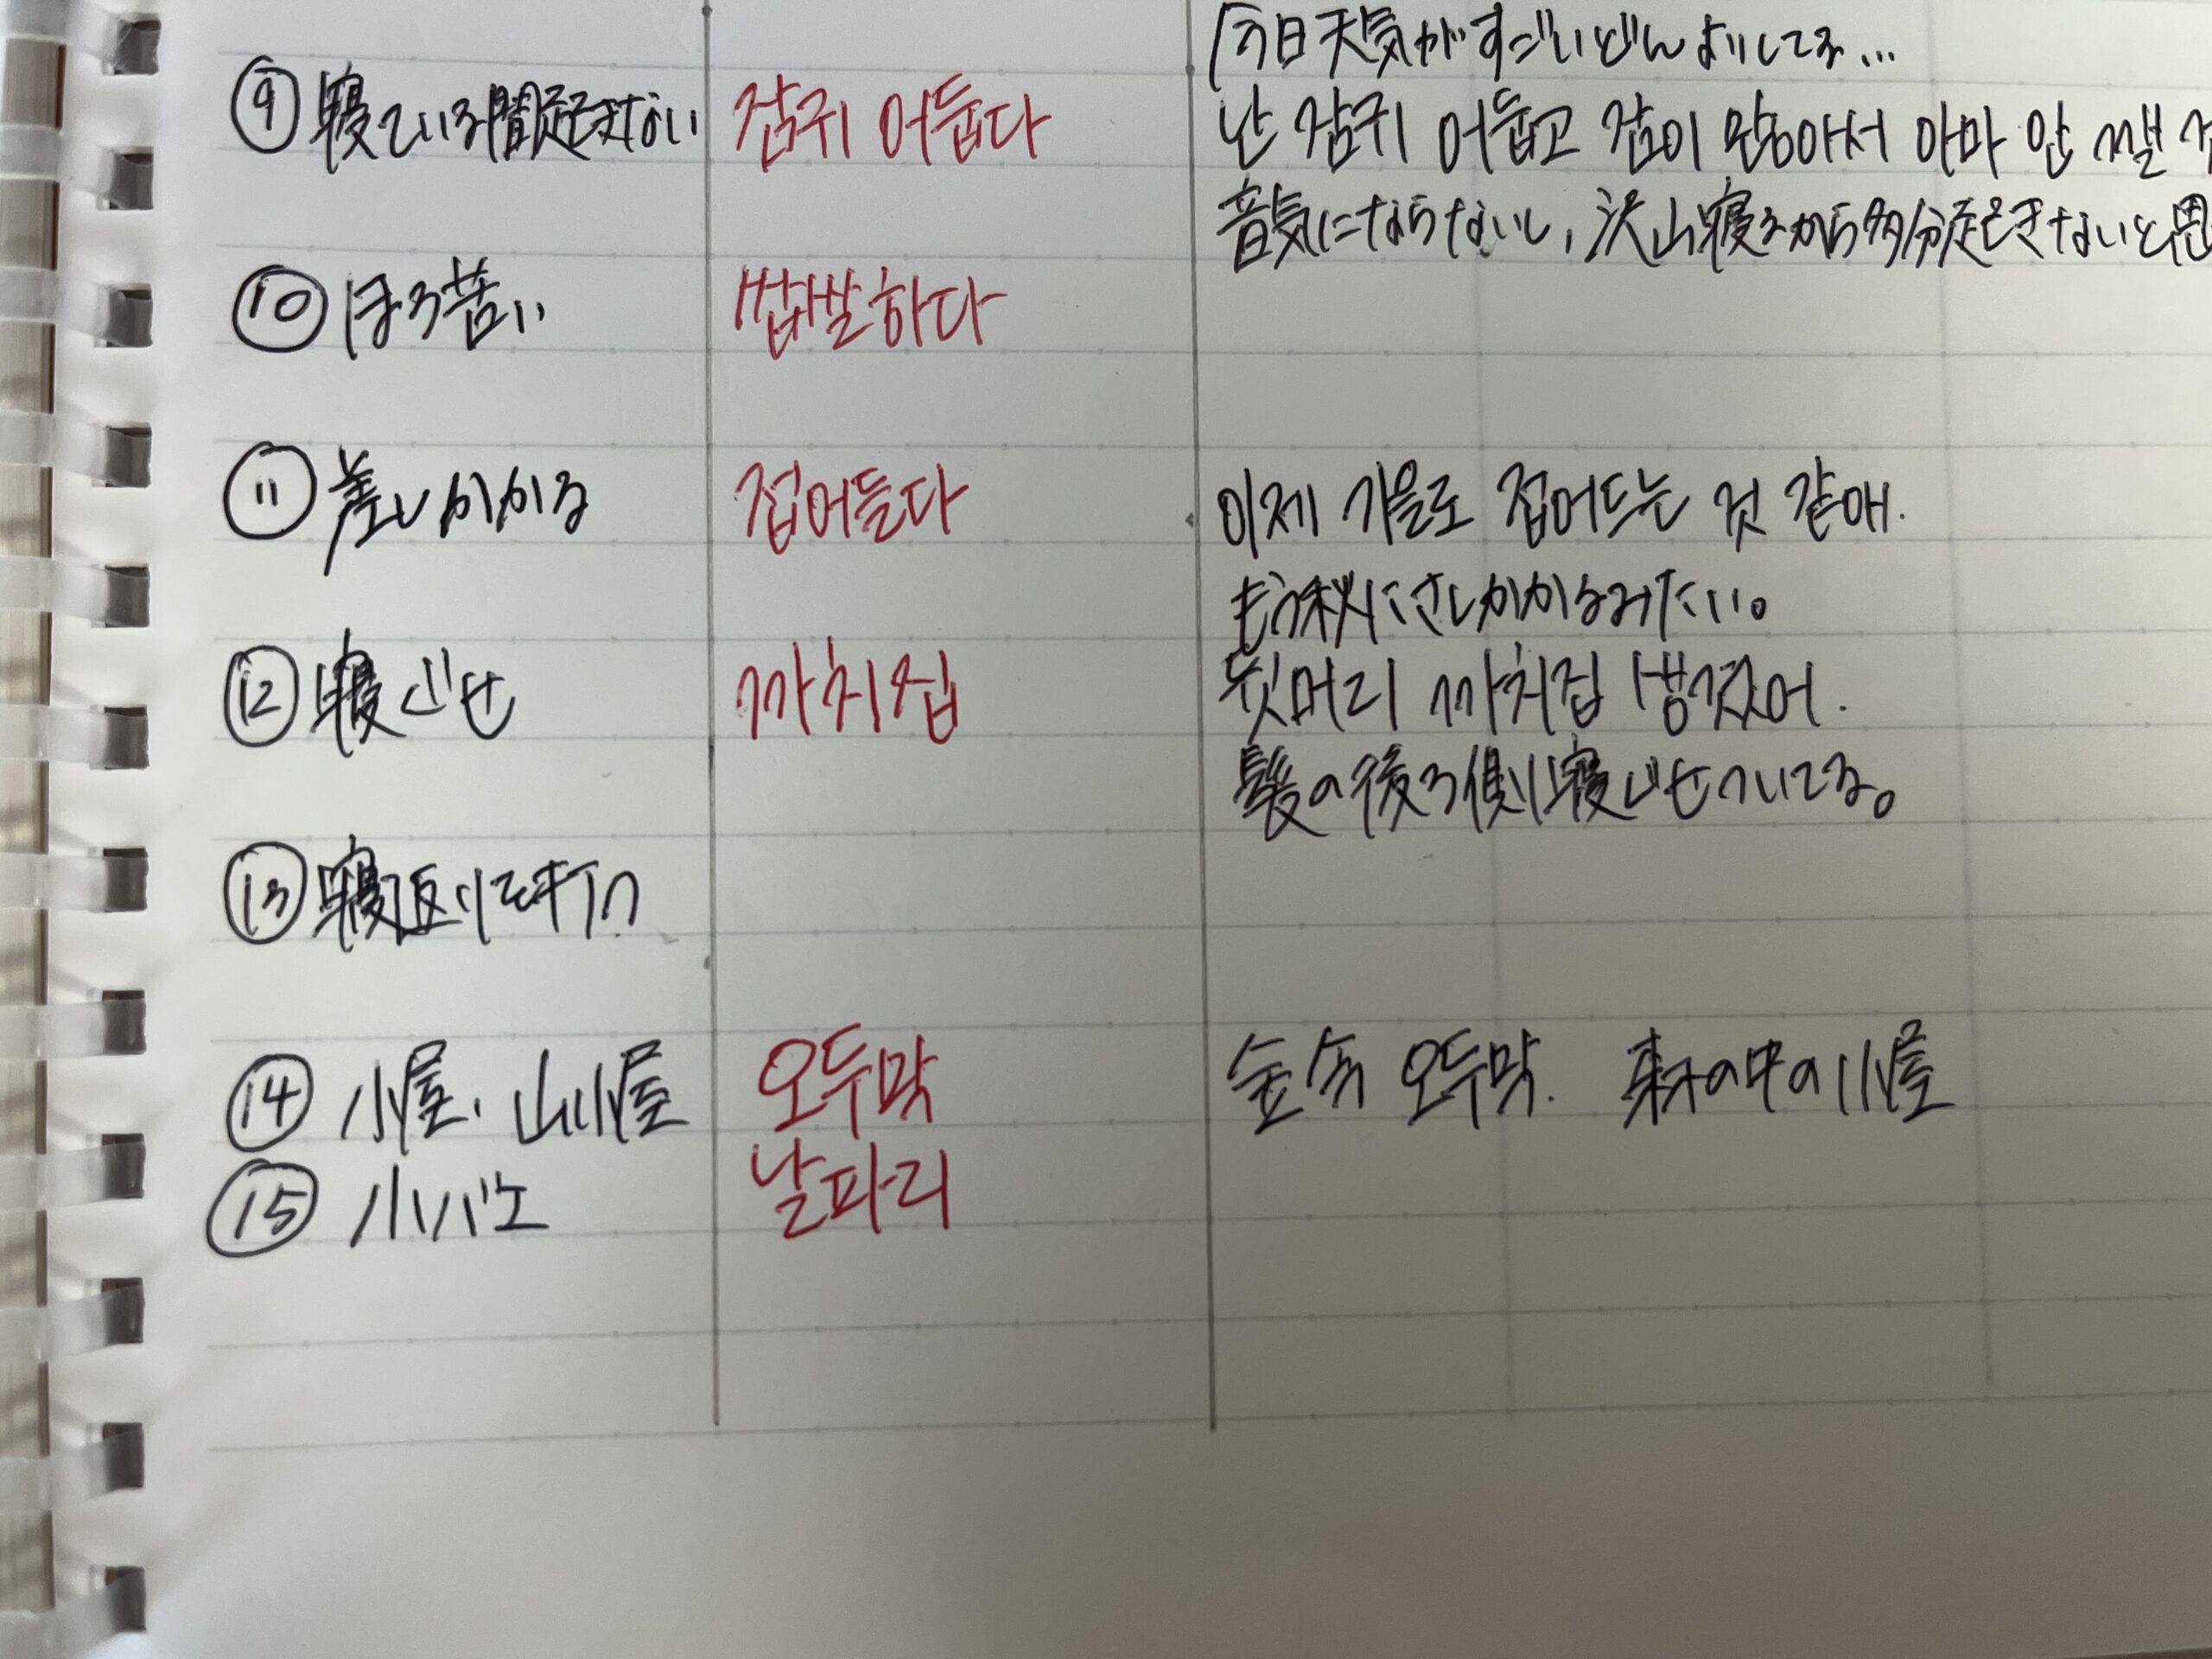 今日天気がすごいどんよりしてる...
⑨ 寝ている間起きない 잠귀 어둡다 난 잠귀 어둡고 잠이 많아서 아마 안 깰
音気にならないし、沢山寝るから多分起きないと思
⑩ ほろ苦い 쌉쌀하다
⑪ 差しかかる 접어들다 이제 가을로 접어드는 것 같애.
もう秋にさしかかるみたい。
⑫ 寝ぐせ 까치집 뒷머리 까치집 생겼어.
髪の後ろ側寝ぐせついてる。
⑬ 寝返りを打つ
⑭ 小屋、山小屋 오두막 숲속 오두막. 森の中の小屋
⑮ 小バエ 날파리